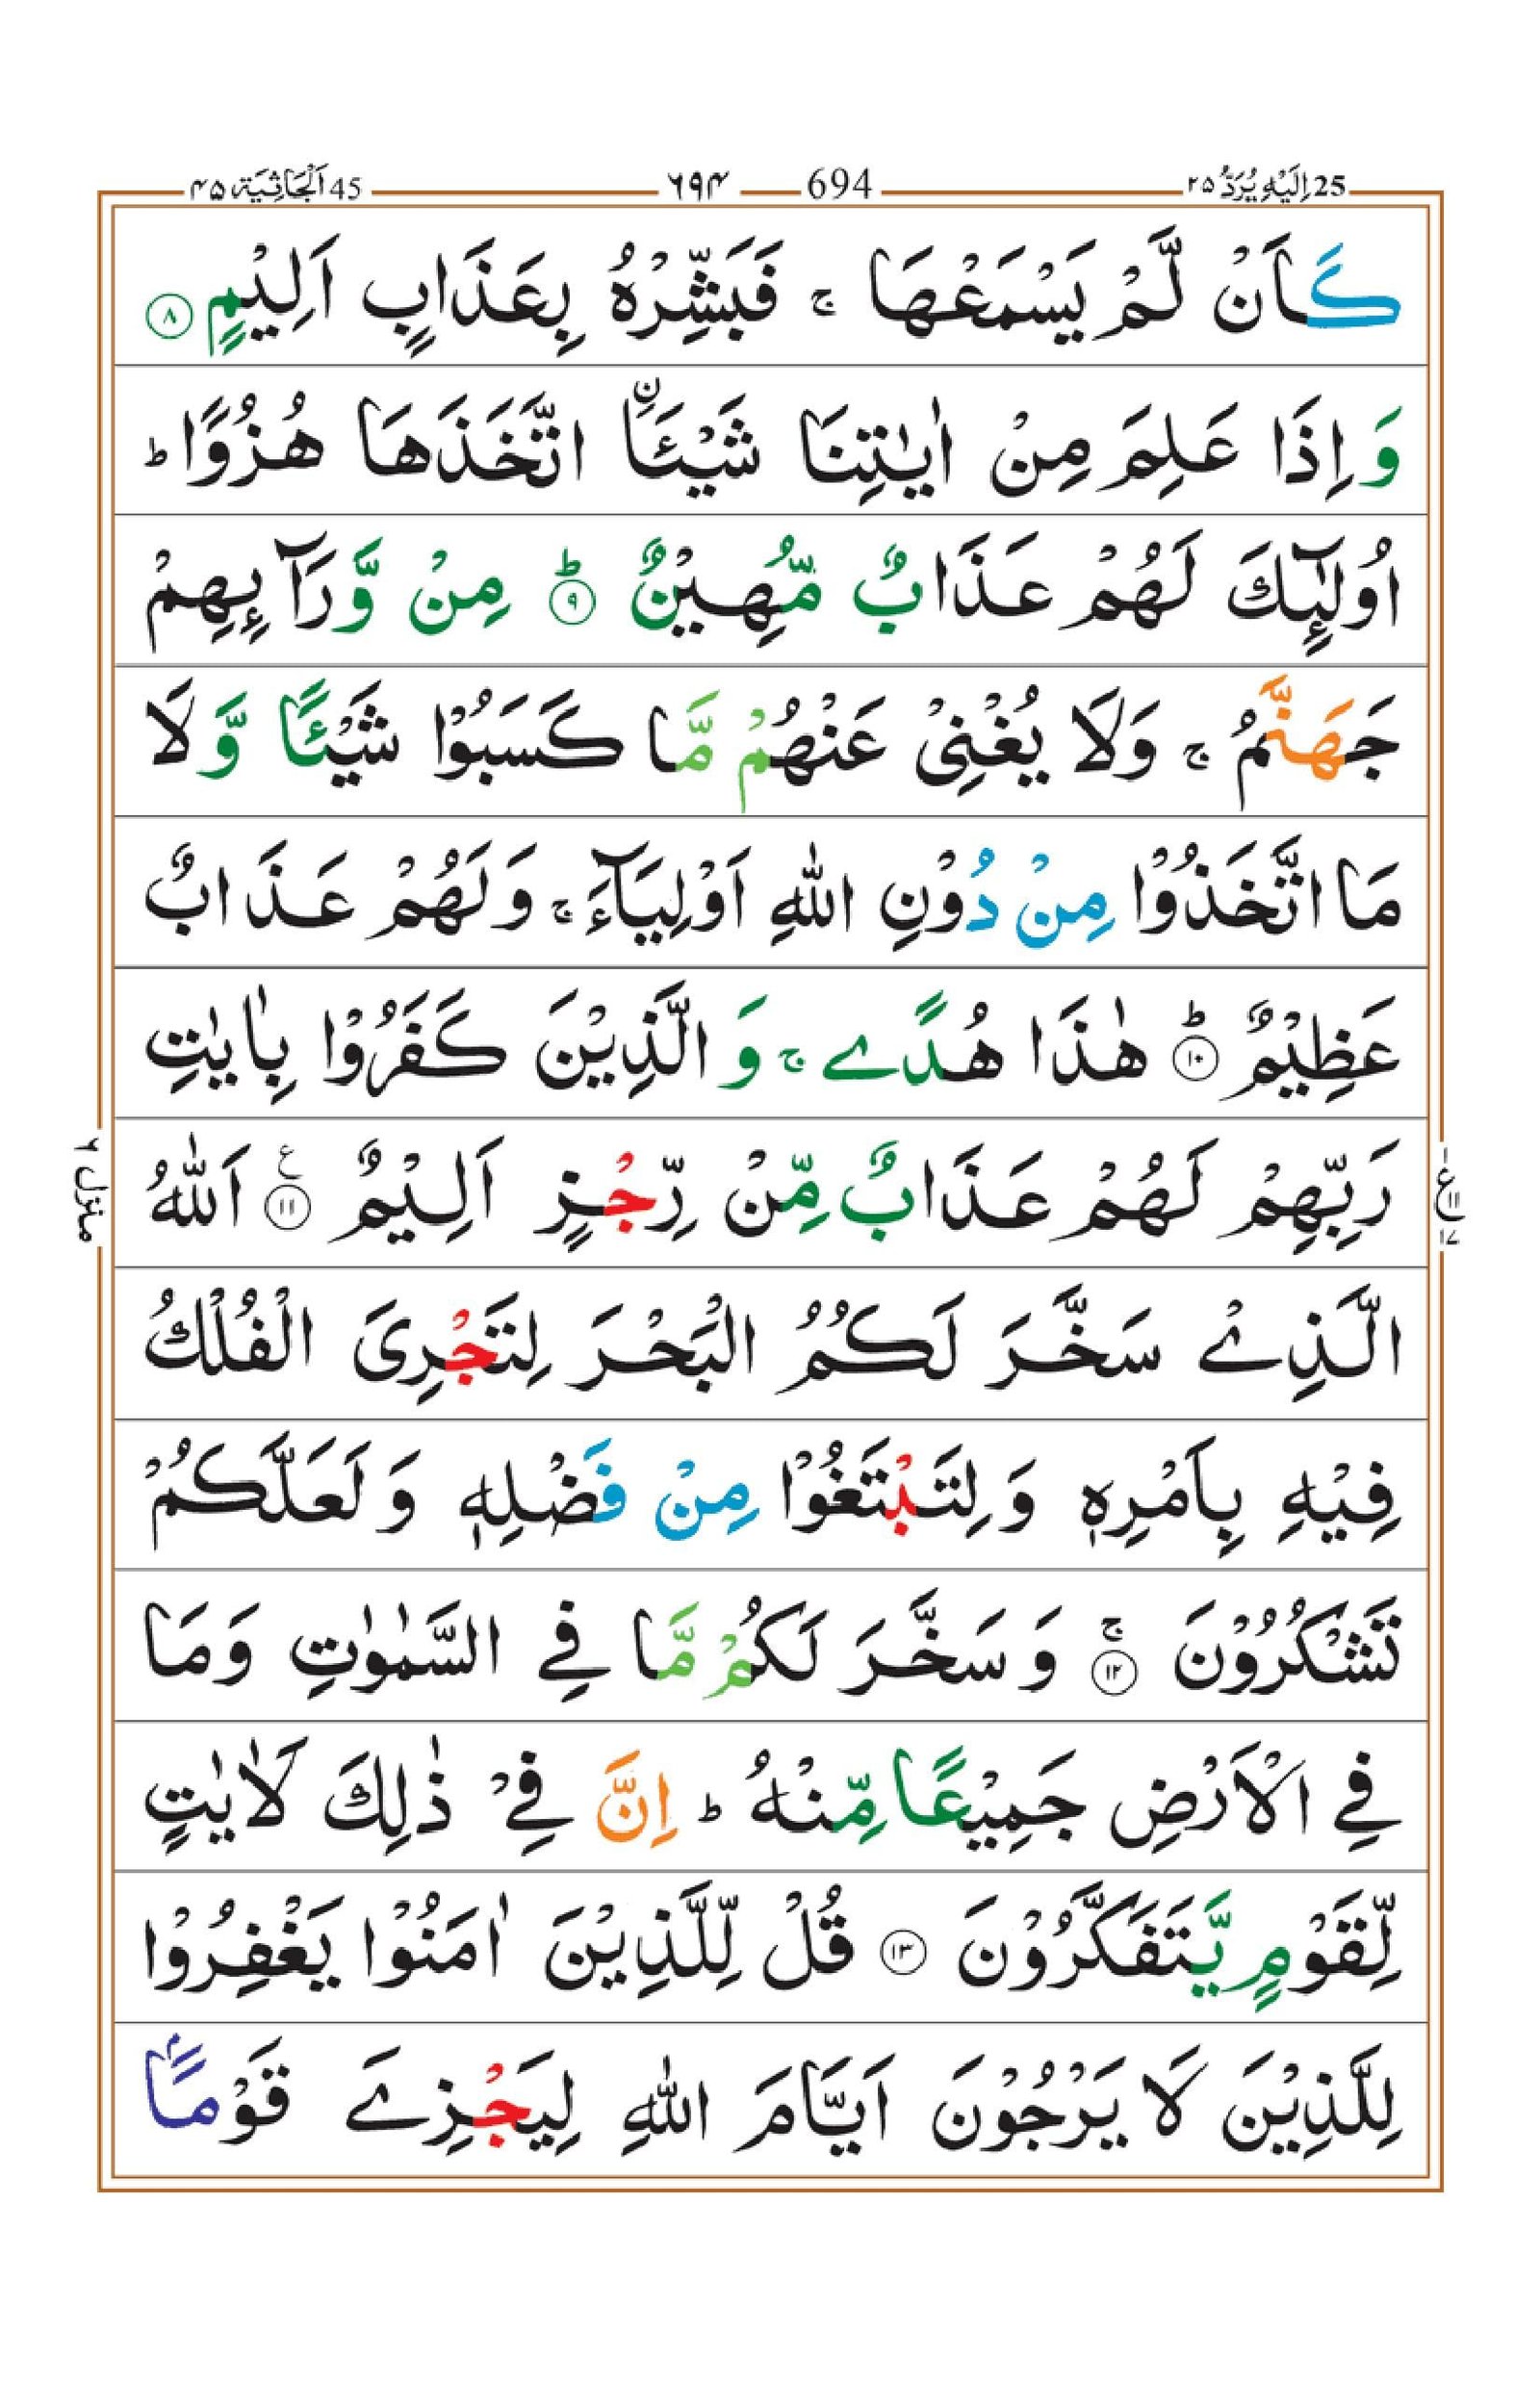 25 اِلَيْهِ يُرَدُّ ۲۵ 694 ۶۹۴ 45 اَلْجَاثِيَة ۴۵
كَاَنْ لَّمْ يَسْمَعْهَا ۚ فَبَشِّرْهُ بِعَذَابٍ اَلِيْمٍ ۸
وَاِذَا عَلِمَ مِنْ اٰيٰتِنَا شَيْـَٔـاۨ اتَّخَذَهَا هُزُوًا ؕ
اُولٰٓئِكَ لَهُمْ عَذَابٌ مُّهِيْنٌ ؕ ۹ مِنْ وَّرَآئِهِمْ
جَهَنَّمُ ۚ وَلَا يُغْنِىْ عَنْهُمْ مَّا كَسَبُوْا شَيْـًٔـا وَّلَا
مَا اتَّخَذُوْا مِنْ دُوْنِ اللّٰهِ اَوْلِيَآءَ ۚ وَلَهُمْ عَذَابٌ
عَظِيْمٌ ؕ ۱۰ هٰذَا هُدًے ۚ وَ الَّذِيْنَ كَفَرُوْا بِاٰيٰتِ
رَبِّهِمْ لَهُمْ عَذَابٌ مِّنْ رِّجْزٍ اَلِيْمٌ ۱۱ ع اَللّٰهُ
الَّذِےْ سَخَّرَ لَكُمُ الْبَحْرَ لِتَجْرِىَ الْفُلْكُ
فِيْهِ بِاَمْرِهٖ وَ لِتَبْتَغُوْا مِنْ فَضْلِهٖ وَ لَعَلَّكُمْ
تَشْكُرُوْنَ ۚ ۱۲ وَ سَخَّرَ لَكُمْ مَّا فِے السَّمٰوٰتِ وَمَا
فِے الْاَرْضِ جَمِيْعًا مِّنْهُ ؕ اِنَّ فِےْ ذٰلِكَ لَاٰيٰتٍ
لِّقَوْمٍ يَّتَفَكَّرُوْنَ ۱۳ قُلْ لِّلَّذِيْنَ اٰمَنُوْا يَغْفِرُوْا
لِلَّذِيْنَ لَا يَرْجُوْنَ اَيَّامَ اللّٰهِ لِيَجْزِےَ قَوْمًاۢ
ع ۱۱ ۱۷
منزل ۶